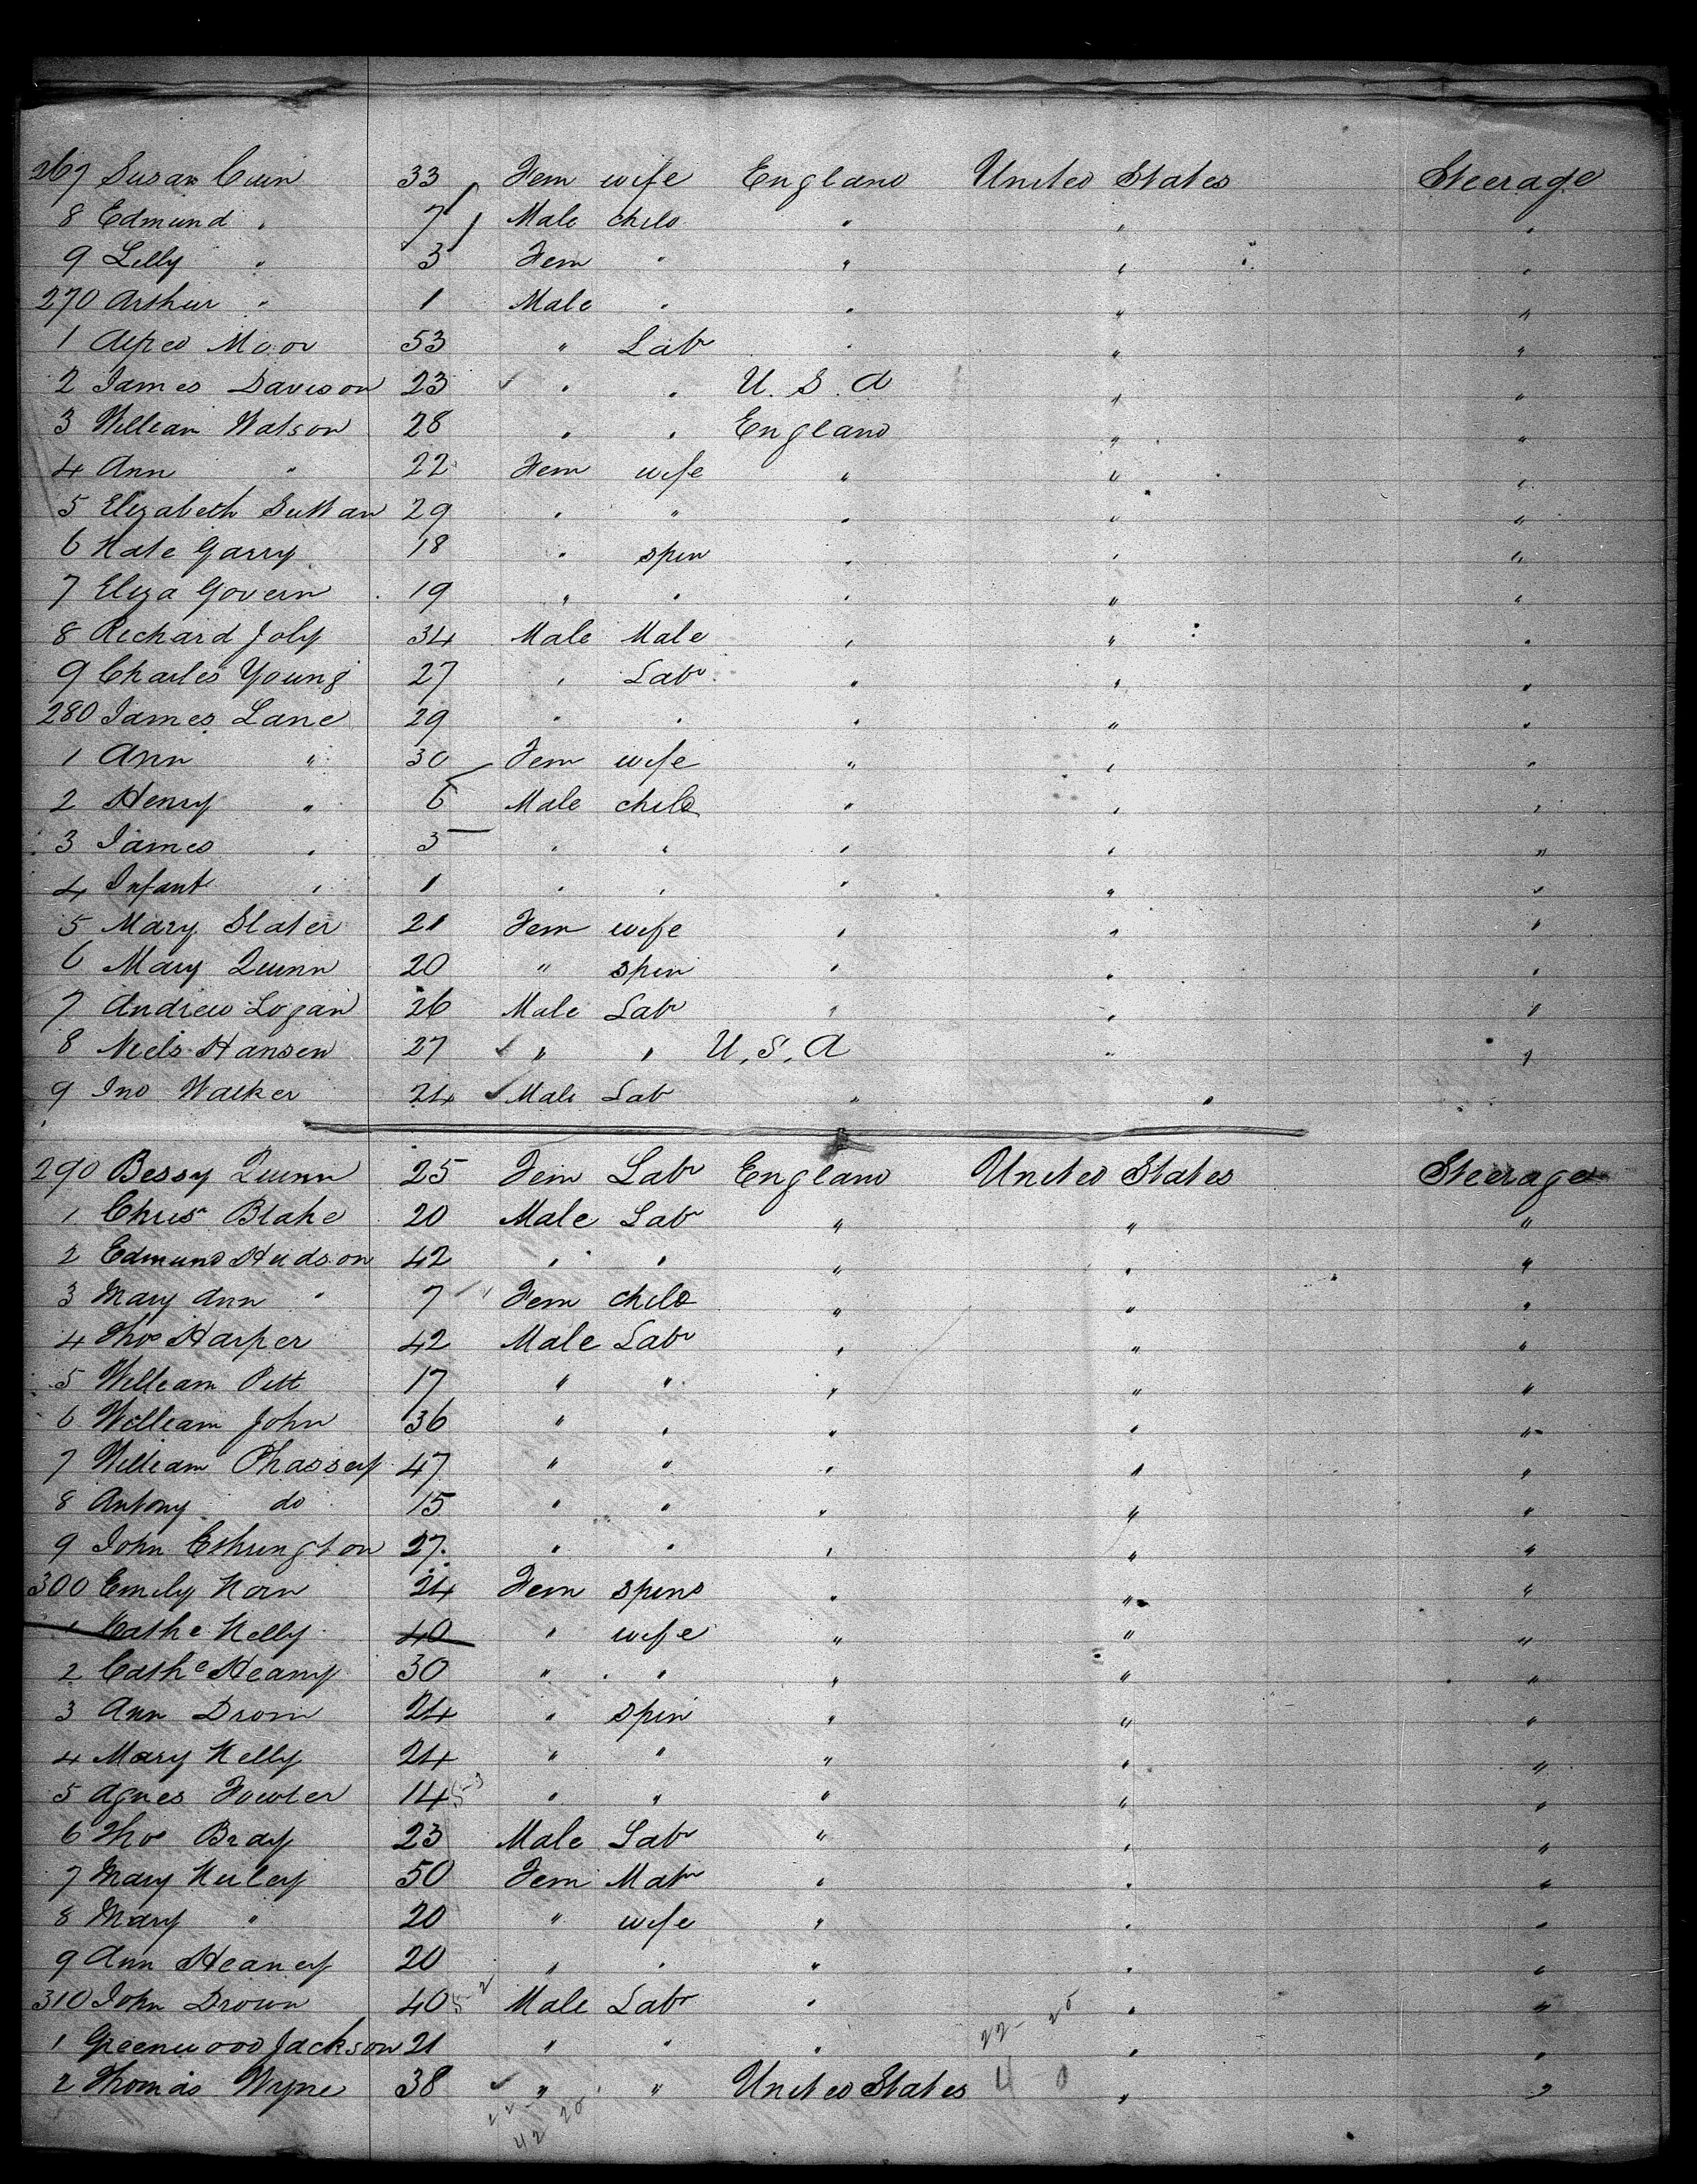 267 Susan Cuin 33 Fem wife England United States Steerage
8 Edmund " 7 Male child " " "
9 Lilly " 3 Fem " " " "
270 Arthur " 1 Male " " " "
1 Alfred Moor 53 " Lab " " "
2 James Davison 23 " " U. S. A " "
3 William Watson 28 " " England " "
4 Ann " 22 Fem wife " " "
5 Elizabeth 29 " " " " "
6 Kate Garry 18 " spin " " "
7 Eliza Govern 19 " " " " "
8 Richard Joly 34 Male Male " " "
9 Charles Young 27 " Lab " " "
280 James Lane 29 " " " " "
1 Ann " 30 Fem wife " " "
2 Henry " 6 Male child " " "
3 James " 3 " " " " "
4 Infant " 1 " " " " "
5 Mary Slater 21 Fem wife " " "
6 Mary Quinn 20 " spin " " "
7 Andrew Logan 26 Male Lab " " "
8 Neils Hansen 27 " " U. S. A " "
9 Jno Walker 24 Male Lab " "
290 Bessy Quinn 25 Fem Lab England United States Steerage
1 Chris Blake 20 Male Lab " " "
2 Edmund Hudson 42 " " " " "
3 Mary Ann " 7 Fem child " " "
4 Thos Harper 42 Male Lab " " "
5 William Pitt 17 " " " " "
6 William John 36 " " " " "
7 William Phassey 47 " " " " "
8 Antony do 15 " " " " "
9 John 27 " " " " "
300 Emily Horn 24 Fem spins " " "
1 Cathe Kelly 40 " wife " " "
2 Cathe Heany 30 " " " " "
3 Ann Drom 24 " spin " " "
4 Mary Kelly 24 " " " " "
5 Agnes Fowler 14 " " " " "
6 Thos Bray 23 Male Lab " " "
7 Mary 50 Fem Matr " " "
8 Mary " 20 " wife " " "
9 Ann Heaney 20 " " " " "
310 John Drown 40 Male Lab " " "
1 Greenwood Jackson 21 " " " " "
2 Thomas Wyne 38 " " United States " "